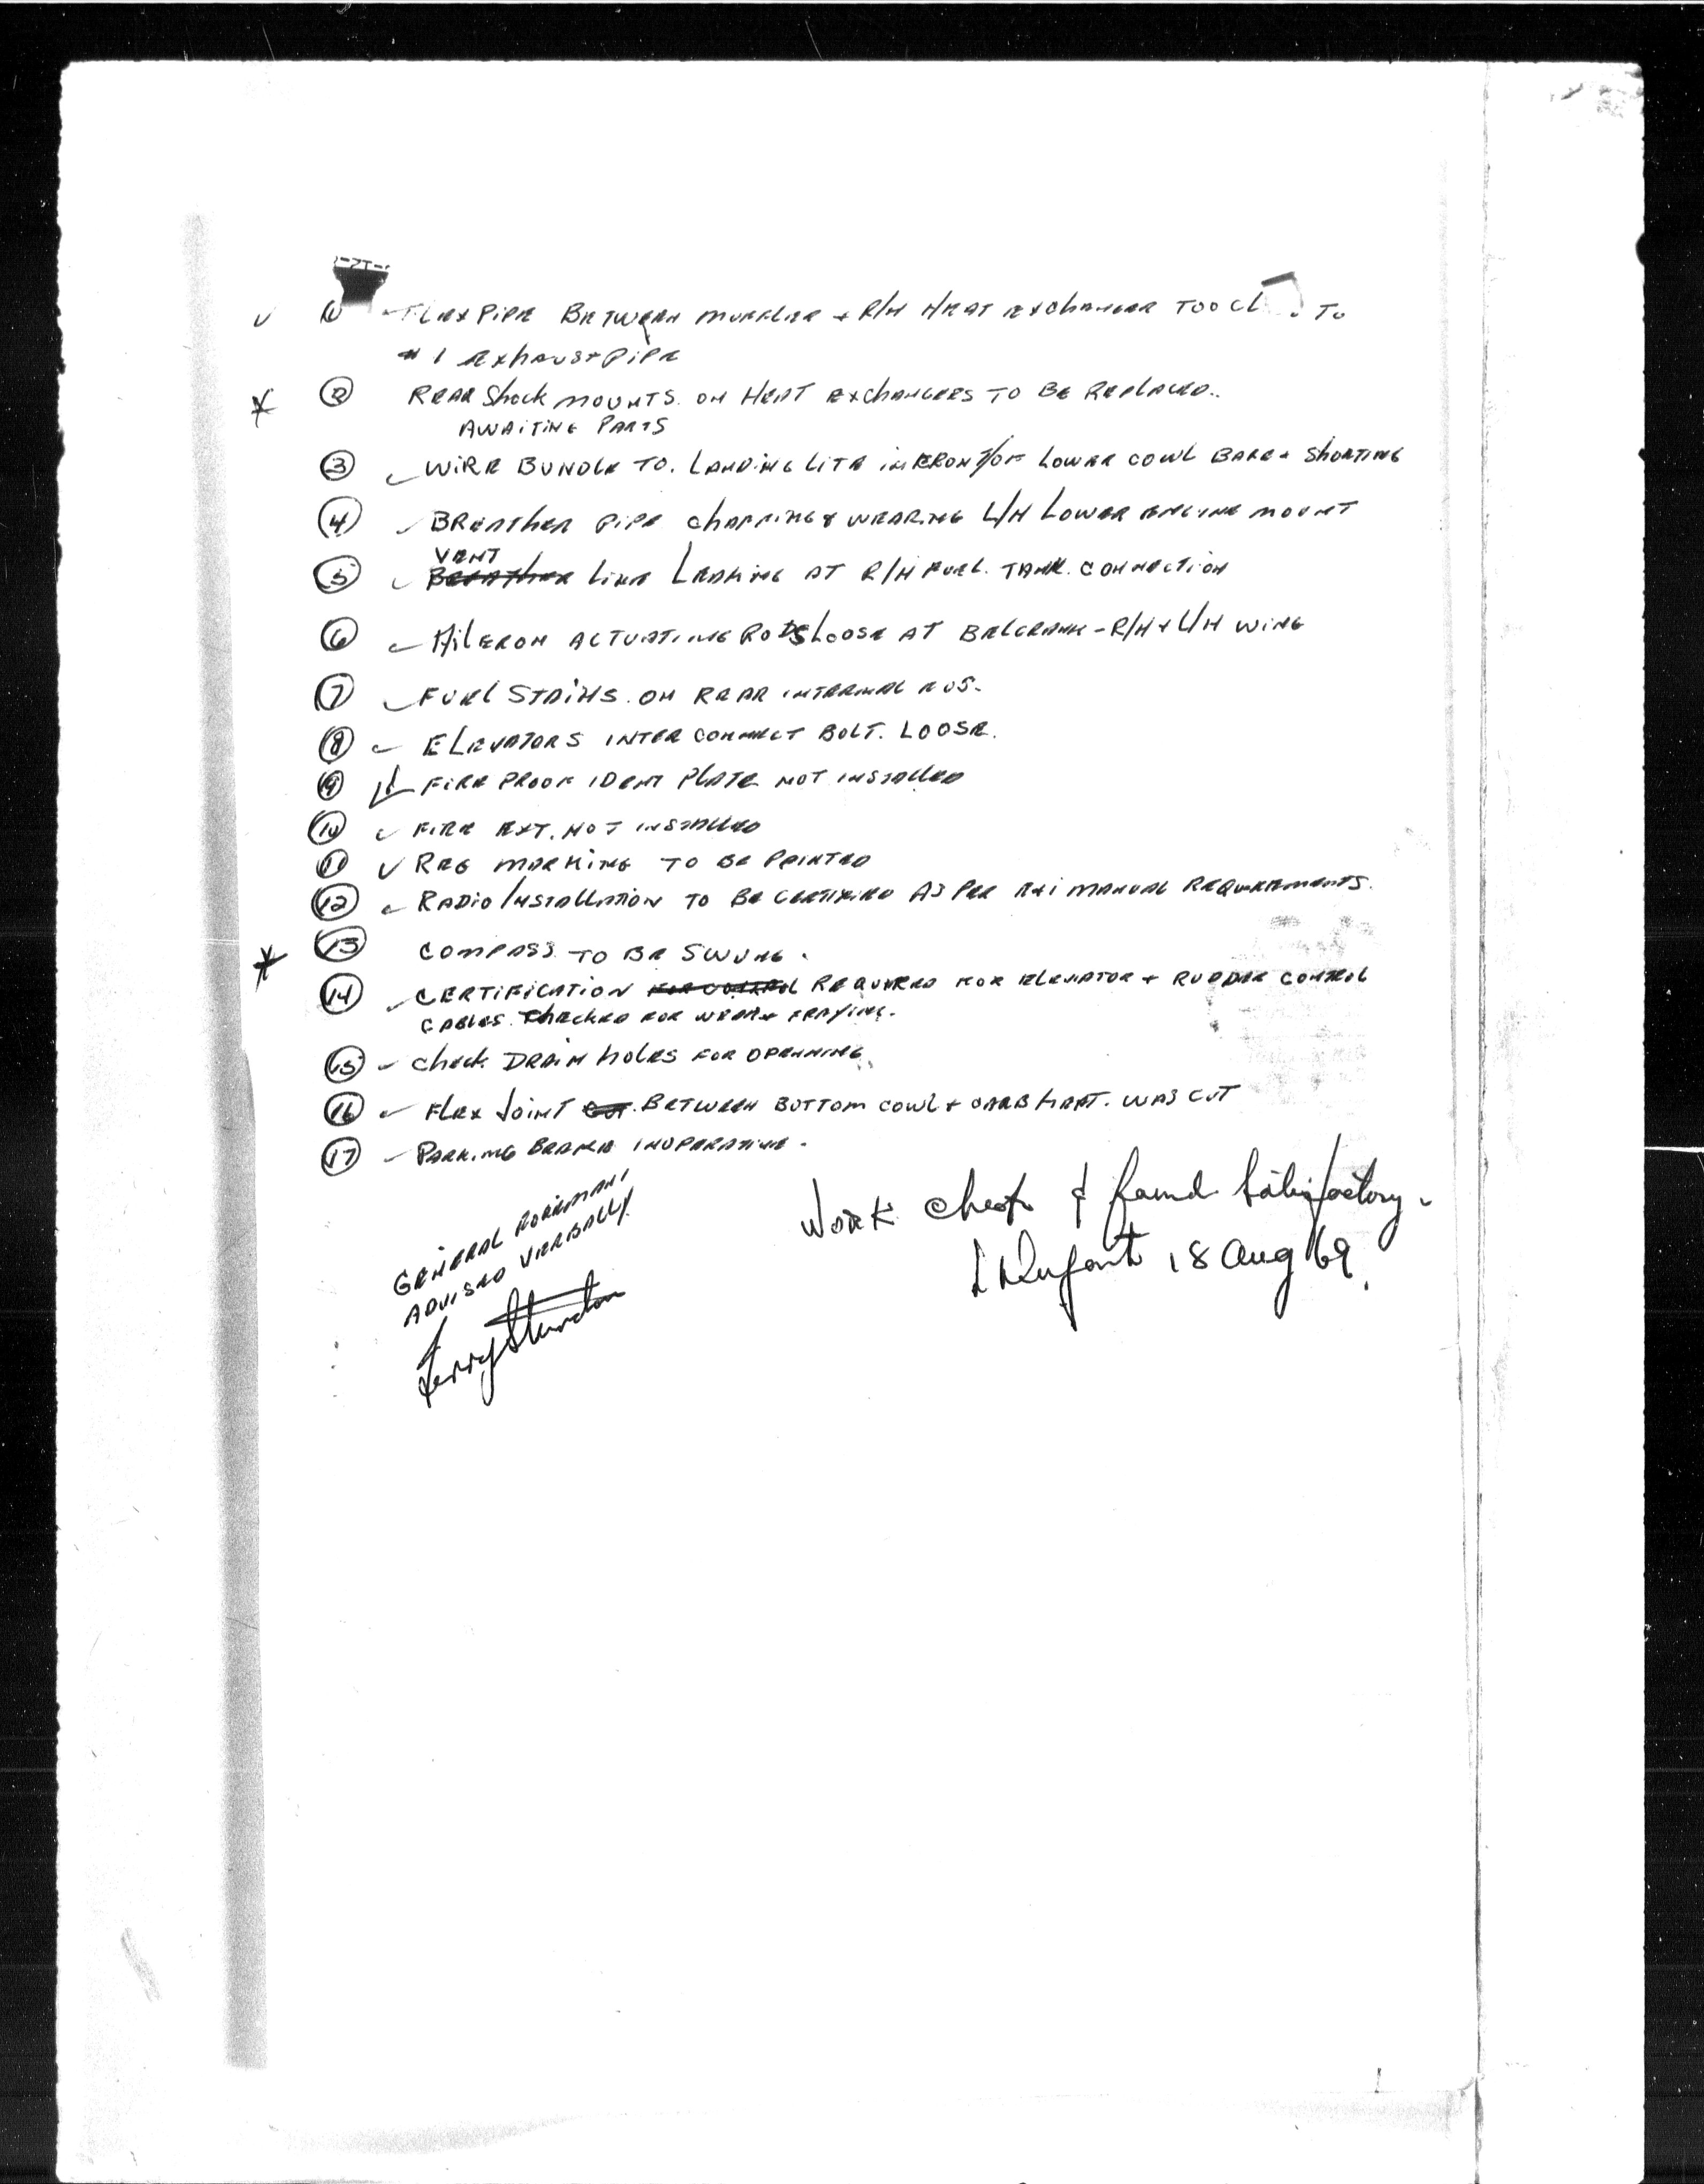 ① FLEX PIPE BETWEEN MUFFLER + R/H HEAT EXCHANGER TOO CL TO
# 1 EXHAUST PIPE
② REAR Shock MOUNTS ON HEAT EXCHANGERS TO BE REPLACED.
AWAITING PARTS
③ WIRE BUNDLE TO LANDING LITE IN FRONT OF LOWER COWL BARE + SHORTING
④ BREATHER PIPE CHAFFING & WEARING L/H LOWER ENGINE MOUNT
VENT
⑤ BREATHER LINE LEAKING AT R/H FUEL TANK CONNECTION
⑥ AILERON ACTUATING RODS LOOSE AT BELCRANK - R/H + L/H WING
⑦ FUEL STAINS ON REAR INTERNAL FUS.
⑧ ELEVATORS INTER CONNECT BOLT LOOSE.
⑨ FIRE PROOF IDENT PLATE NOT INSTALLED
⑩ FIRE EXT. NOT INSTALLED
⑪ REG MARKING TO BE PAINTED
⑫ RADIO INSTALLATION TO BE CERTIFIED AS PER E+I MANUAL REQUIREMENTS.
⑬ COMPASS TO BE SWUNG.
⑭ CERTIFICATION FOR CONTROL REQUIRED FOR ELEVATOR + RUDDER CONTROL
CABLES CHECKED FOR WEAR + FRAYING.
⑮ Check DRAIN HOLES FOR OPENNING
⑯ FLEX JOINT CUT BETWEEN BOTTOM COWL + CARB HEAT. WAS CUT
⑰ PARKING BRAKE INOPERATIVE.
GENERAL
ADVISED VERBALLY
Work check & found satisfactory.
18 Aug 69.